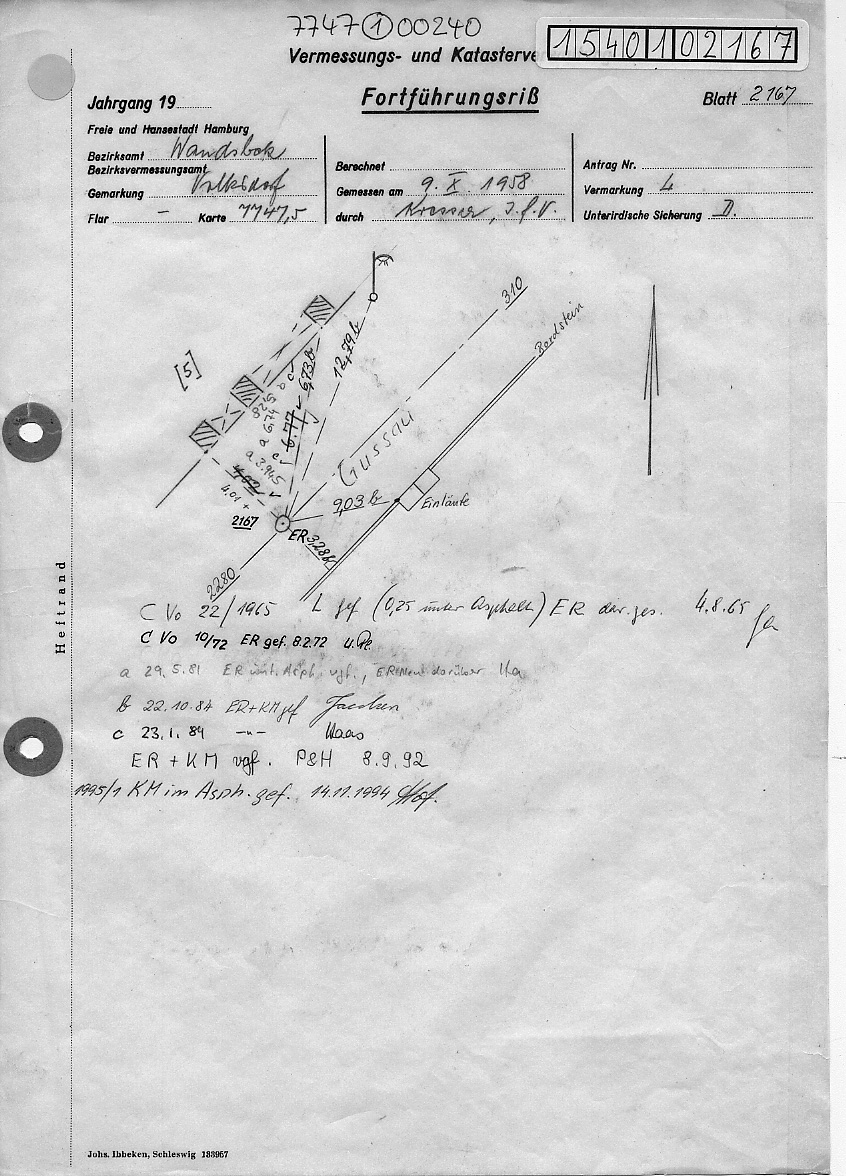 7747 1 00240
Vermessungs- und Katasterve
15401 02167
Jahrgang 19
Fortführungsriß
Blatt 2167
Freie und Hansestadt Hamburg
Bezirksamt Wandsbek
Bezirksvermessungsamt
Gemarkung Volksdorf
Flur – Karte 7747,5
Berechnet
Gemessen am 9. X. 1958
durch
Antrag Nr.
Vermarkung L
Unterirdische Sicherung D.
310
Bordstein
[5]
12,79 b
6,73 b
8,25 a c
a 6,74
6,77
a 3.945 c
4,02
4.01 +
Gussau
9,03 b
Einläufe
2167
ER
3,28 b
2280
C Vo 22/1965 L gef (0,25 unter Asphalt) ER dar. ges. 4.8.65
C Vo 10/72 ER gef. 8.2.72
a 29.5.81 ER unt. Asph. vgf., ER neu darüber Ha
b 22.10.84 ER+KM gef
c 23.1.84 -"- Haas
ER + KM vgf. P&H 8.9.92
1995/1 KM im Asph. gef. 14.11.1994
Heftrand
Johs. Ibbeken, Schleswig 183967